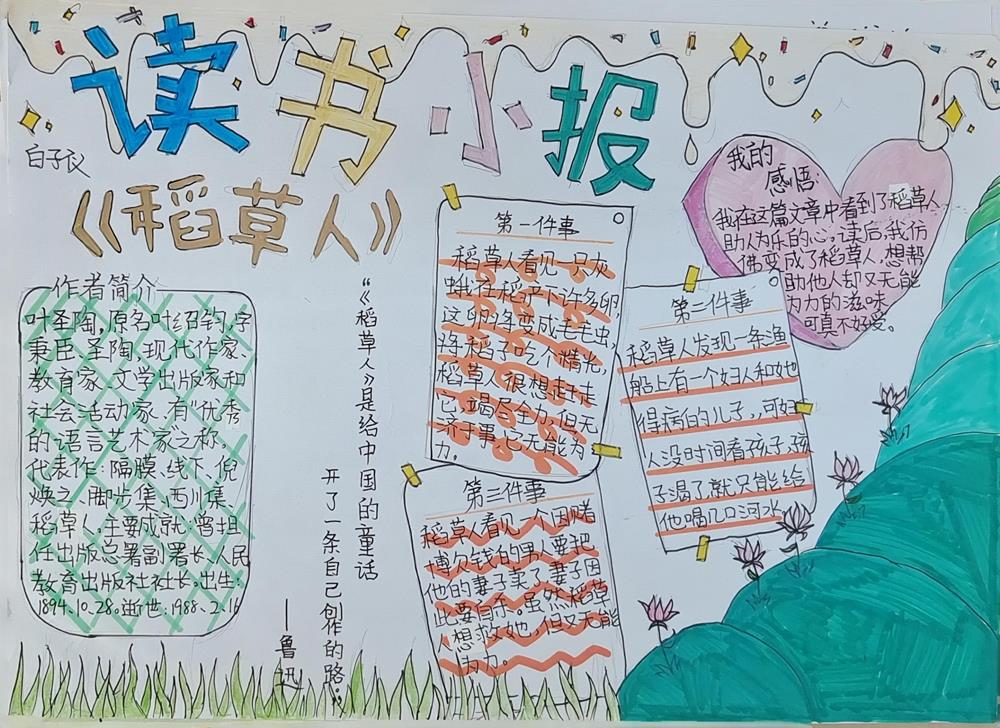 读书小报
白子衣
《稻草人》
作者简介
叶圣陶,原名叶绍钧,字
秉臣、圣陶、现代作家、
教育家、文学出版家和
社会活动家、有“优秀
的语言艺术家”之称,
代表作:隔膜、线下、倪
焕之、脚步集、西川集、
稻草人、主要成就:曾担
任出版总署副署长、人民
教育出版社社长。出生:
1894.10.28。逝世:1988.2.16
“《稻草人》是给中国的童话
开了一条自己创作的路。”
——鲁迅
第一件事
稻草人看见一只灰
蛾在稻子下许多卵,
这卵将变成毛毛虫,
将稻子吃个精光,
稻草人很想赶走
它,竭尽全力,但无
济于事,它无能为
力。
第二件事
稻草人发现一条渔
船上有一个妇人和她
得病的儿子,可妇
人没时间看孩子,孩
子渴了就只能给
他喝几口河水
第三件事
稻草人看见一个因赌
博欠钱的男人要把
他的妻子卖了,妻子因
此要自杀。虽然稻草
人想救她,但又无能
为力。
我的
感悟:
我在这篇文章中看到了稻草人
助人为乐的心,读后,我仿
佛变成了稻草人、想帮
助他人却又无能
为力的滋味
可真不好受。